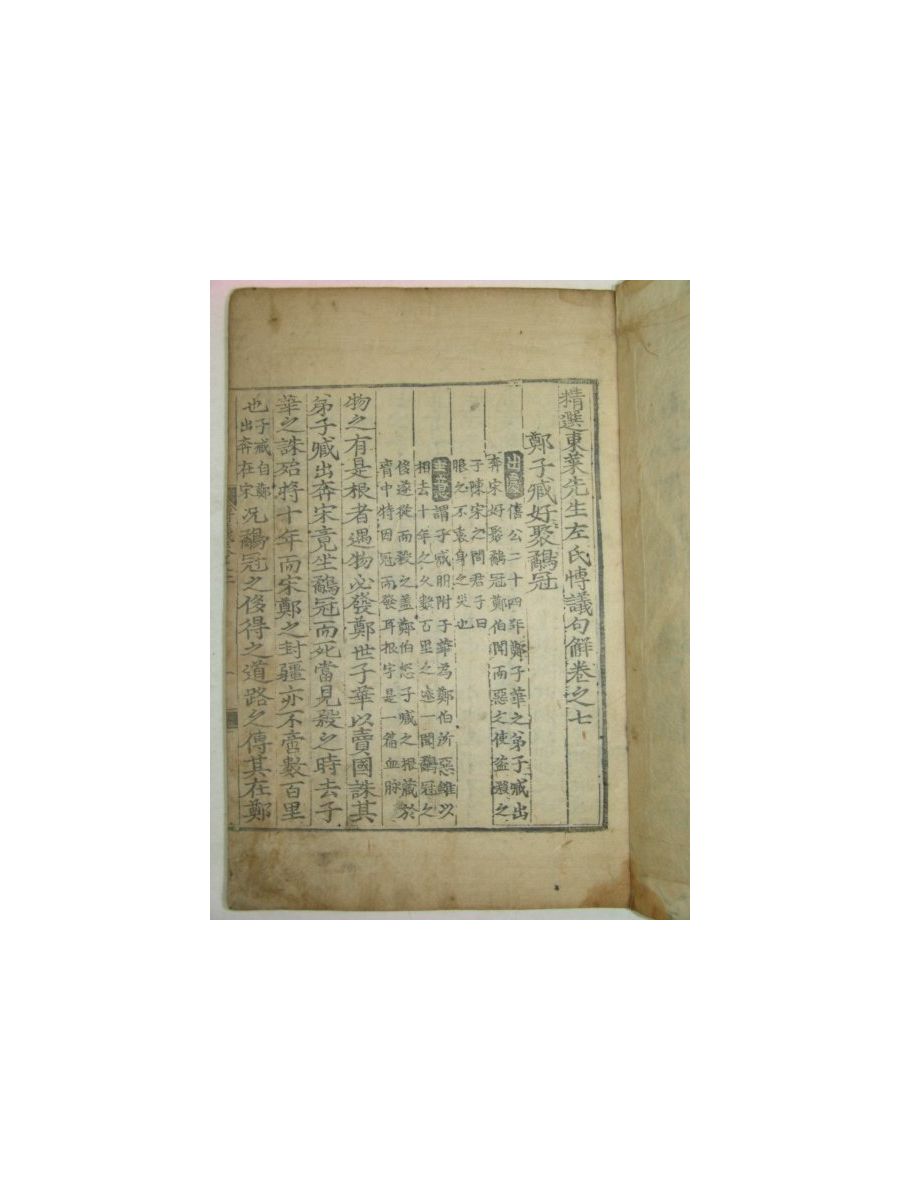 精選東萊先生左氏博議句解卷之七
鄭子臧好聚鷸冠
出處 僖公二十四年鄭子華之弟子臧出
奔宋好聚鷸冠鄭伯聞而惡之使盜殺之
子陳宋之間君子曰
服之不衷身之災也
主意 謂子臧朋附子華為鄭伯所惡雖以
相去十年之久數百里之遠一聞鷸冠之
侈遂從而殺之蓋鄭伯怒子臧之根藏於
胷中特因冠而發耳根字是一篇血脉
物之有是根者遇物必發鄭世子華以賣國誅其
弟子臧出奔宋竟坐鷸冠而死當見殺之時去子
華之誅殆將十年而宋鄭之封疆亦不啻數百里
也 子臧自鄭出奔在宋 况鷸冠之侈得之道路之傳其在鄭